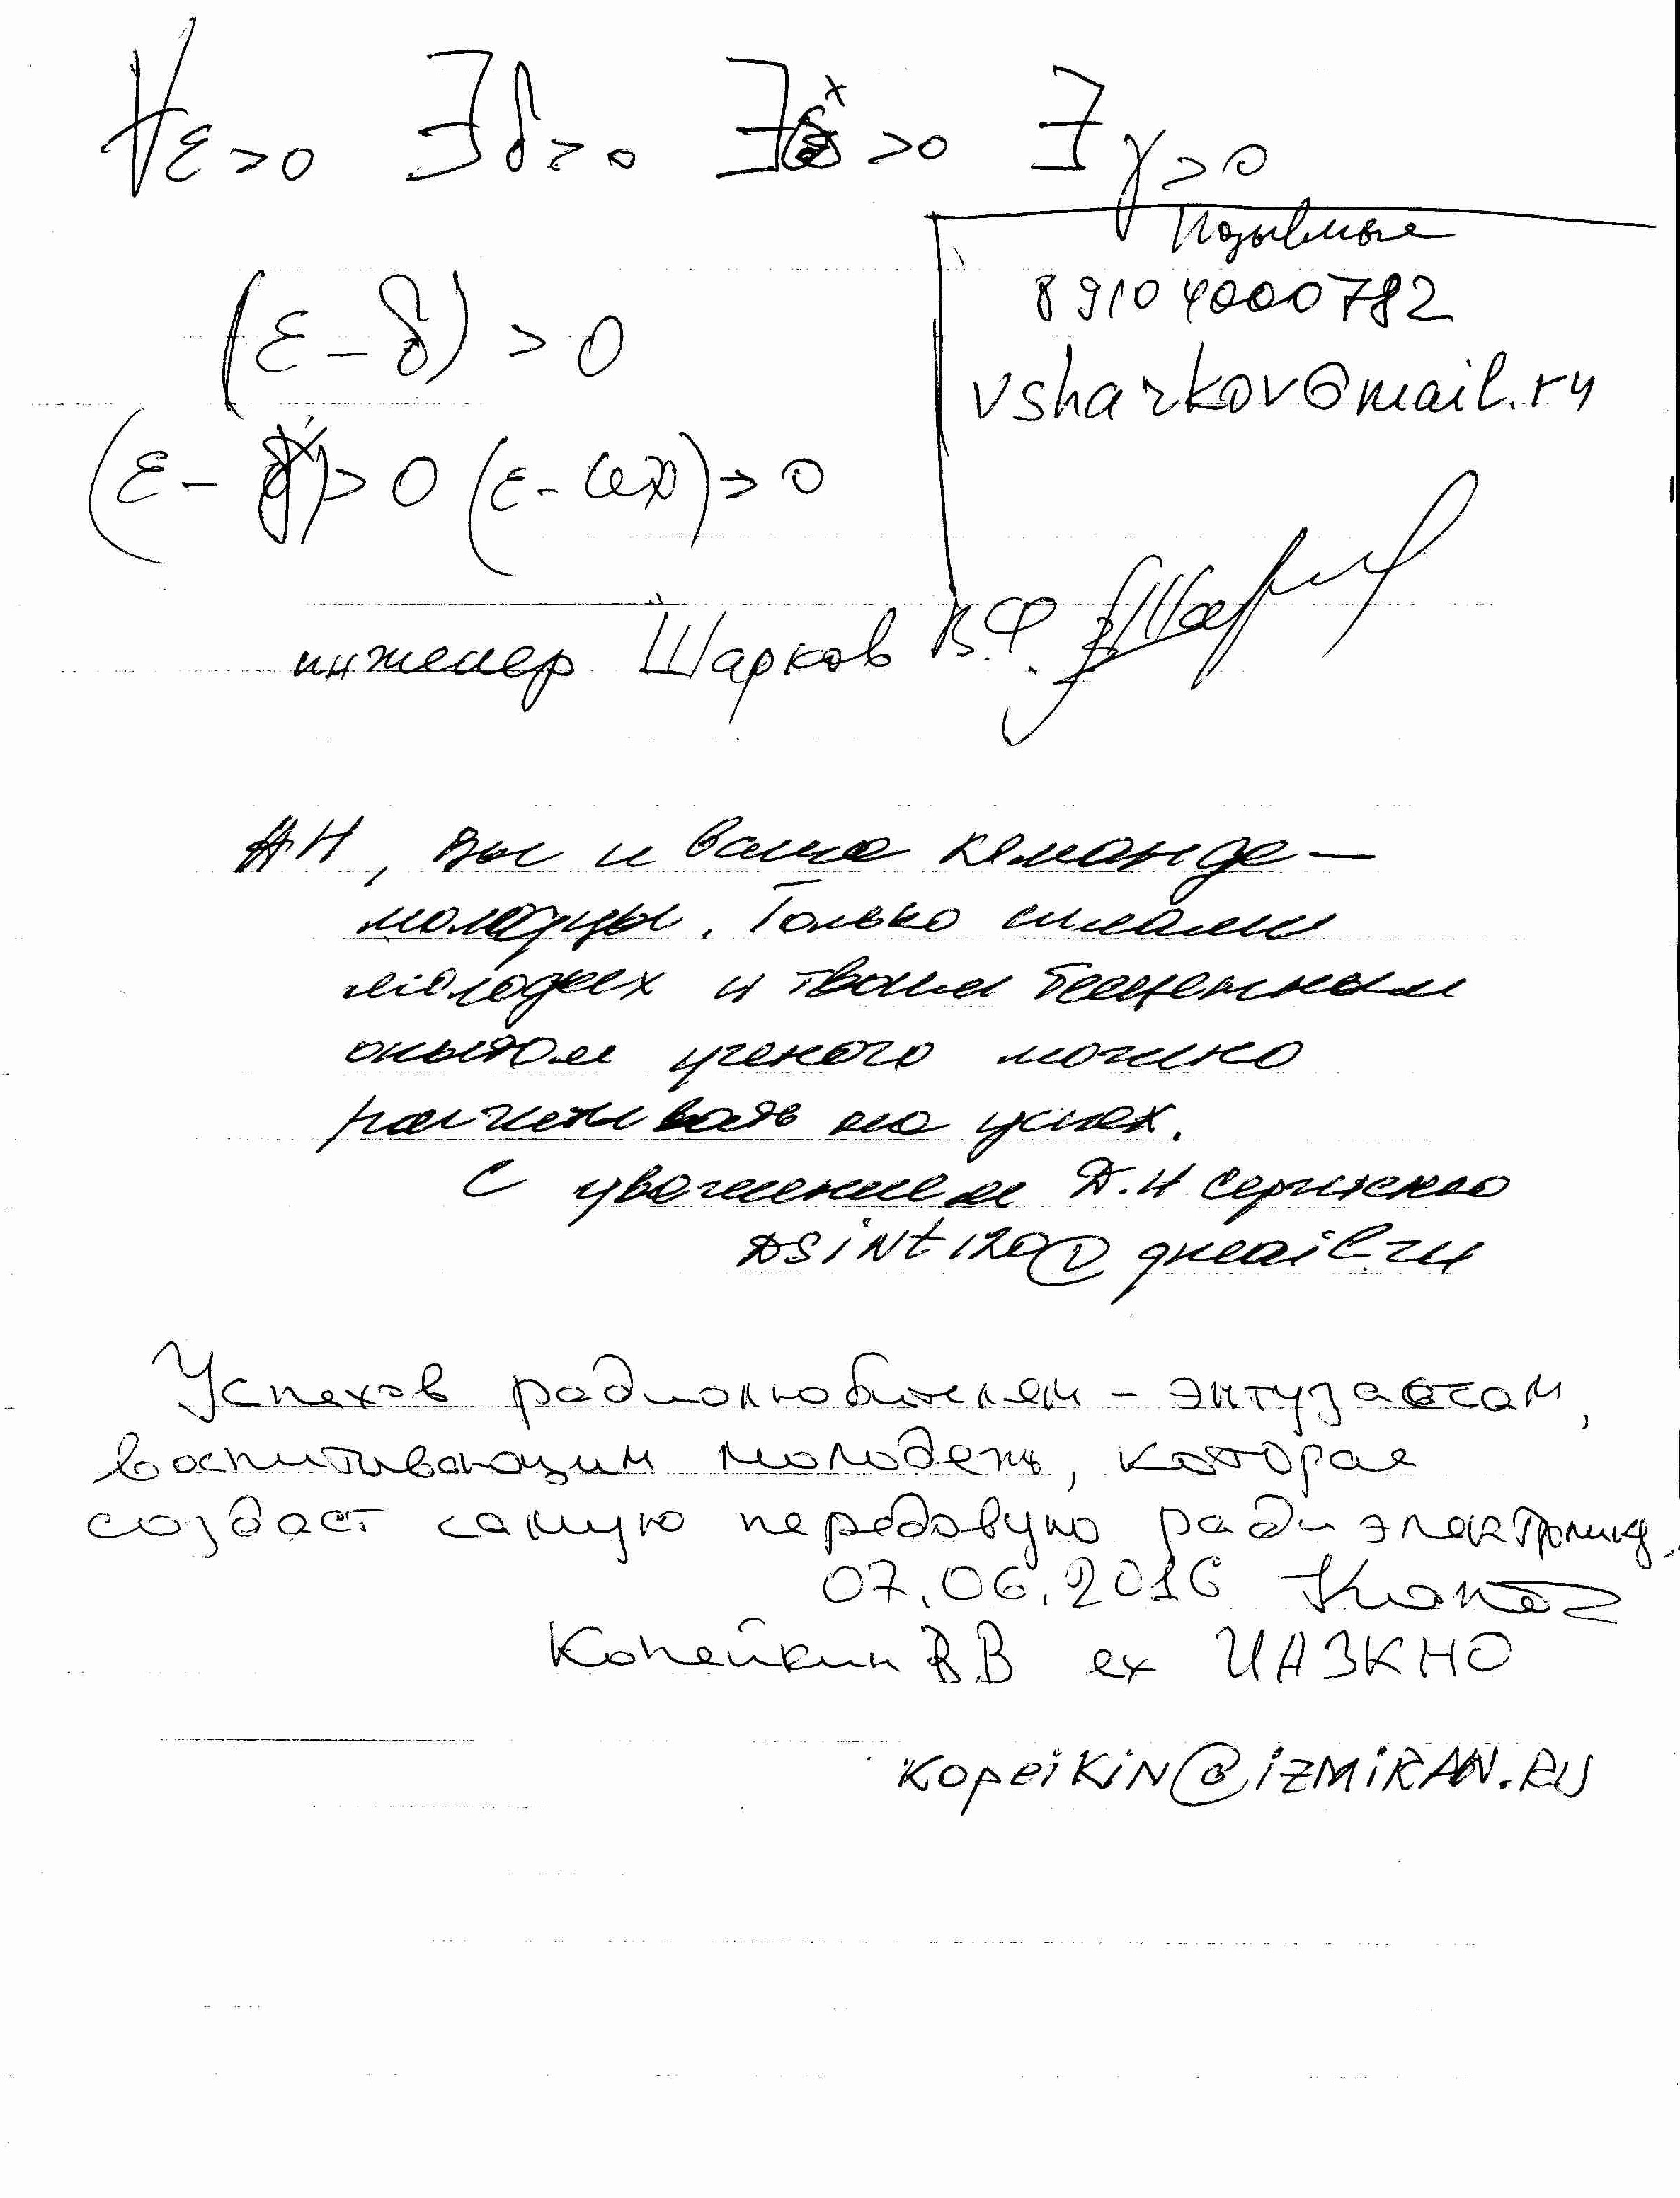 ∀ε>0 ∃δ>0 ∃ >0 ∃γ>0
Позывные
89104000782
vsharkov@mail.ru
(ε-δ)>0
(ε- )>0 (ε- )>0
инженер Шарков В.Ф.
АН, вы и ваша команда —
молодцы. Только силами
молодых и твоим бесценным
опытом ученого можно
расчитывать на успех.
С уважением Д.Н
DSINT120@gmail.ru
Успехов радиолюбителям - энтузаастам,
воспитывающим молодежь, которая
создаст самую передовую радиэлектронику.
07.06.2016
Копейкин В.В ex UA3KHO
KopeiKiN@iZMiRAN.RU